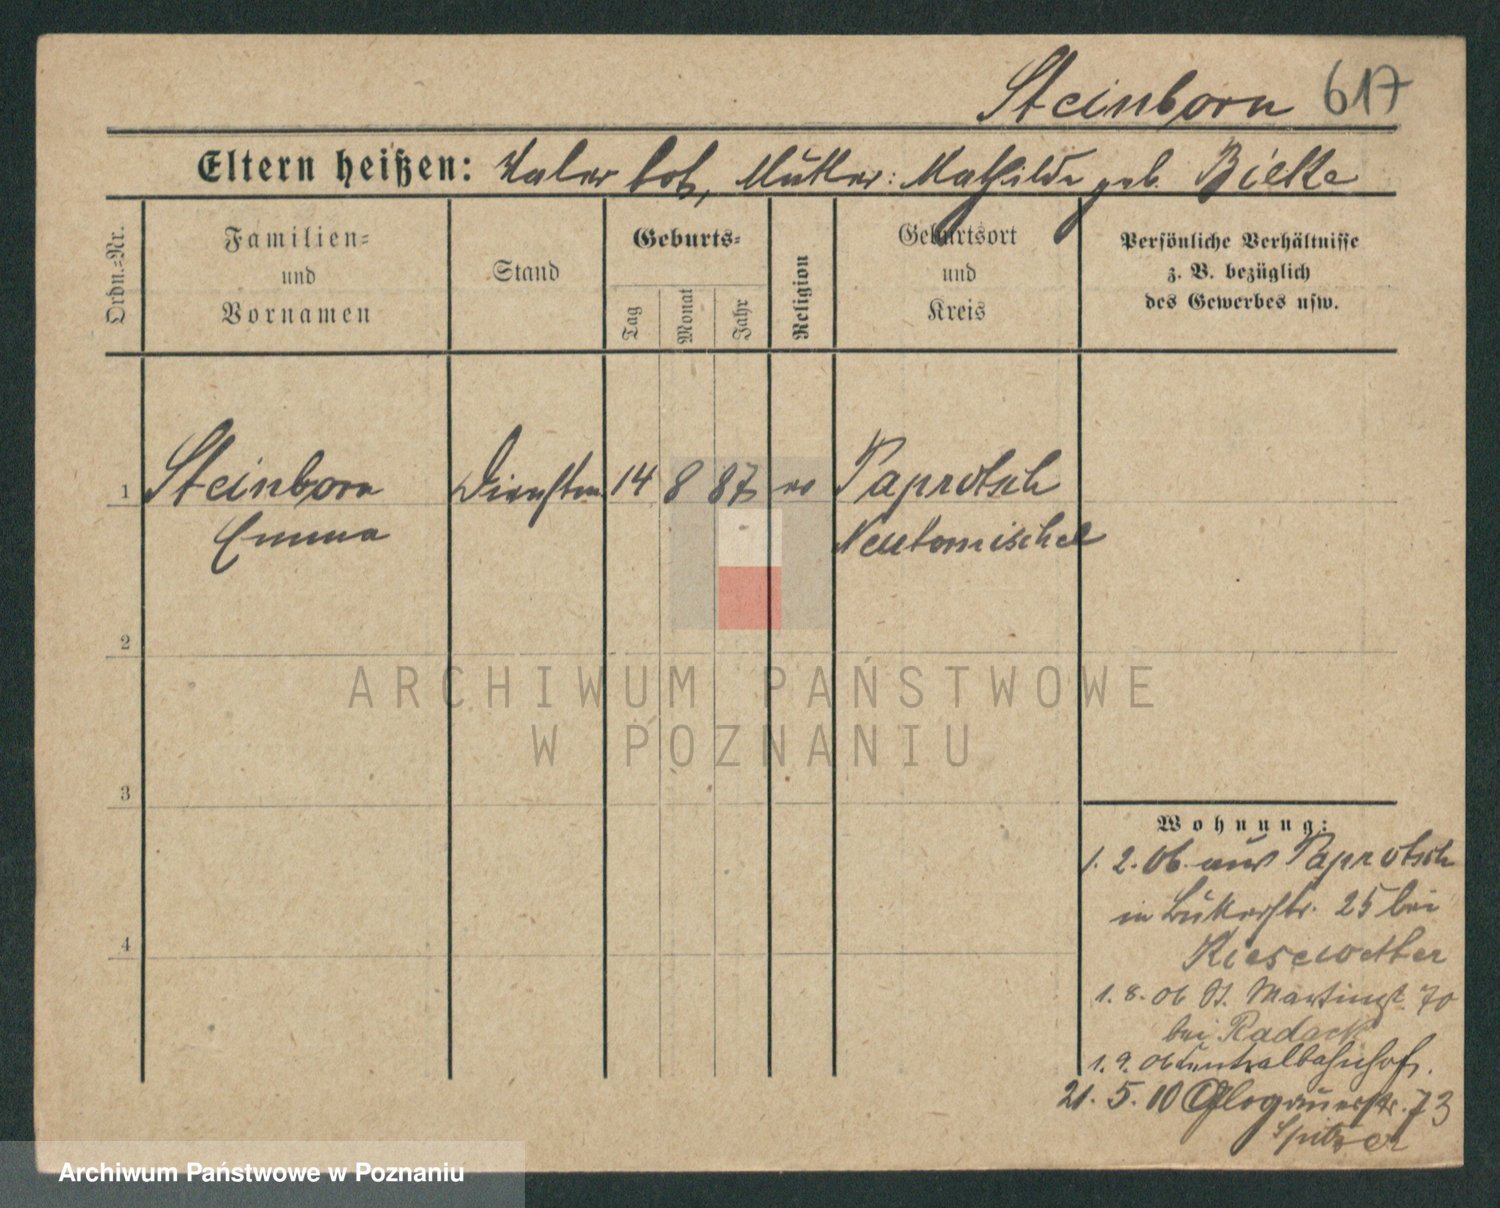 Steinborn 617
Eltern heißen: Vater tot, Mutter: Mathilde geb. Bielke
Ordn.=Nr.
Familien=
und
Vornamen
Stand
Geburts=
Tag
Monat
Jahr
Religion
Geburtsort
und
Kreis
Persönliche Verhältnisse
z. B. bezüglich
des Gewerbes usw.
1 Steinborn Dienstm 14 8 87 ev Paprotsch
Emma Neutomischel
2
3
4
ARCHIWUM PAŃSTWOWE
W POZNANIU
Wohnung:
1. 2. 06. aus Paprotsch
in Bukerstr. 25 bei
Kiesewetter
1. 8. 06 St. Martinst. 70
bei Radack
1. 9. 06 Centralbahnhof.
21. 5. 10 Glogauerstr. 73
Spitzer
Archiwum Państwowe w Poznaniu